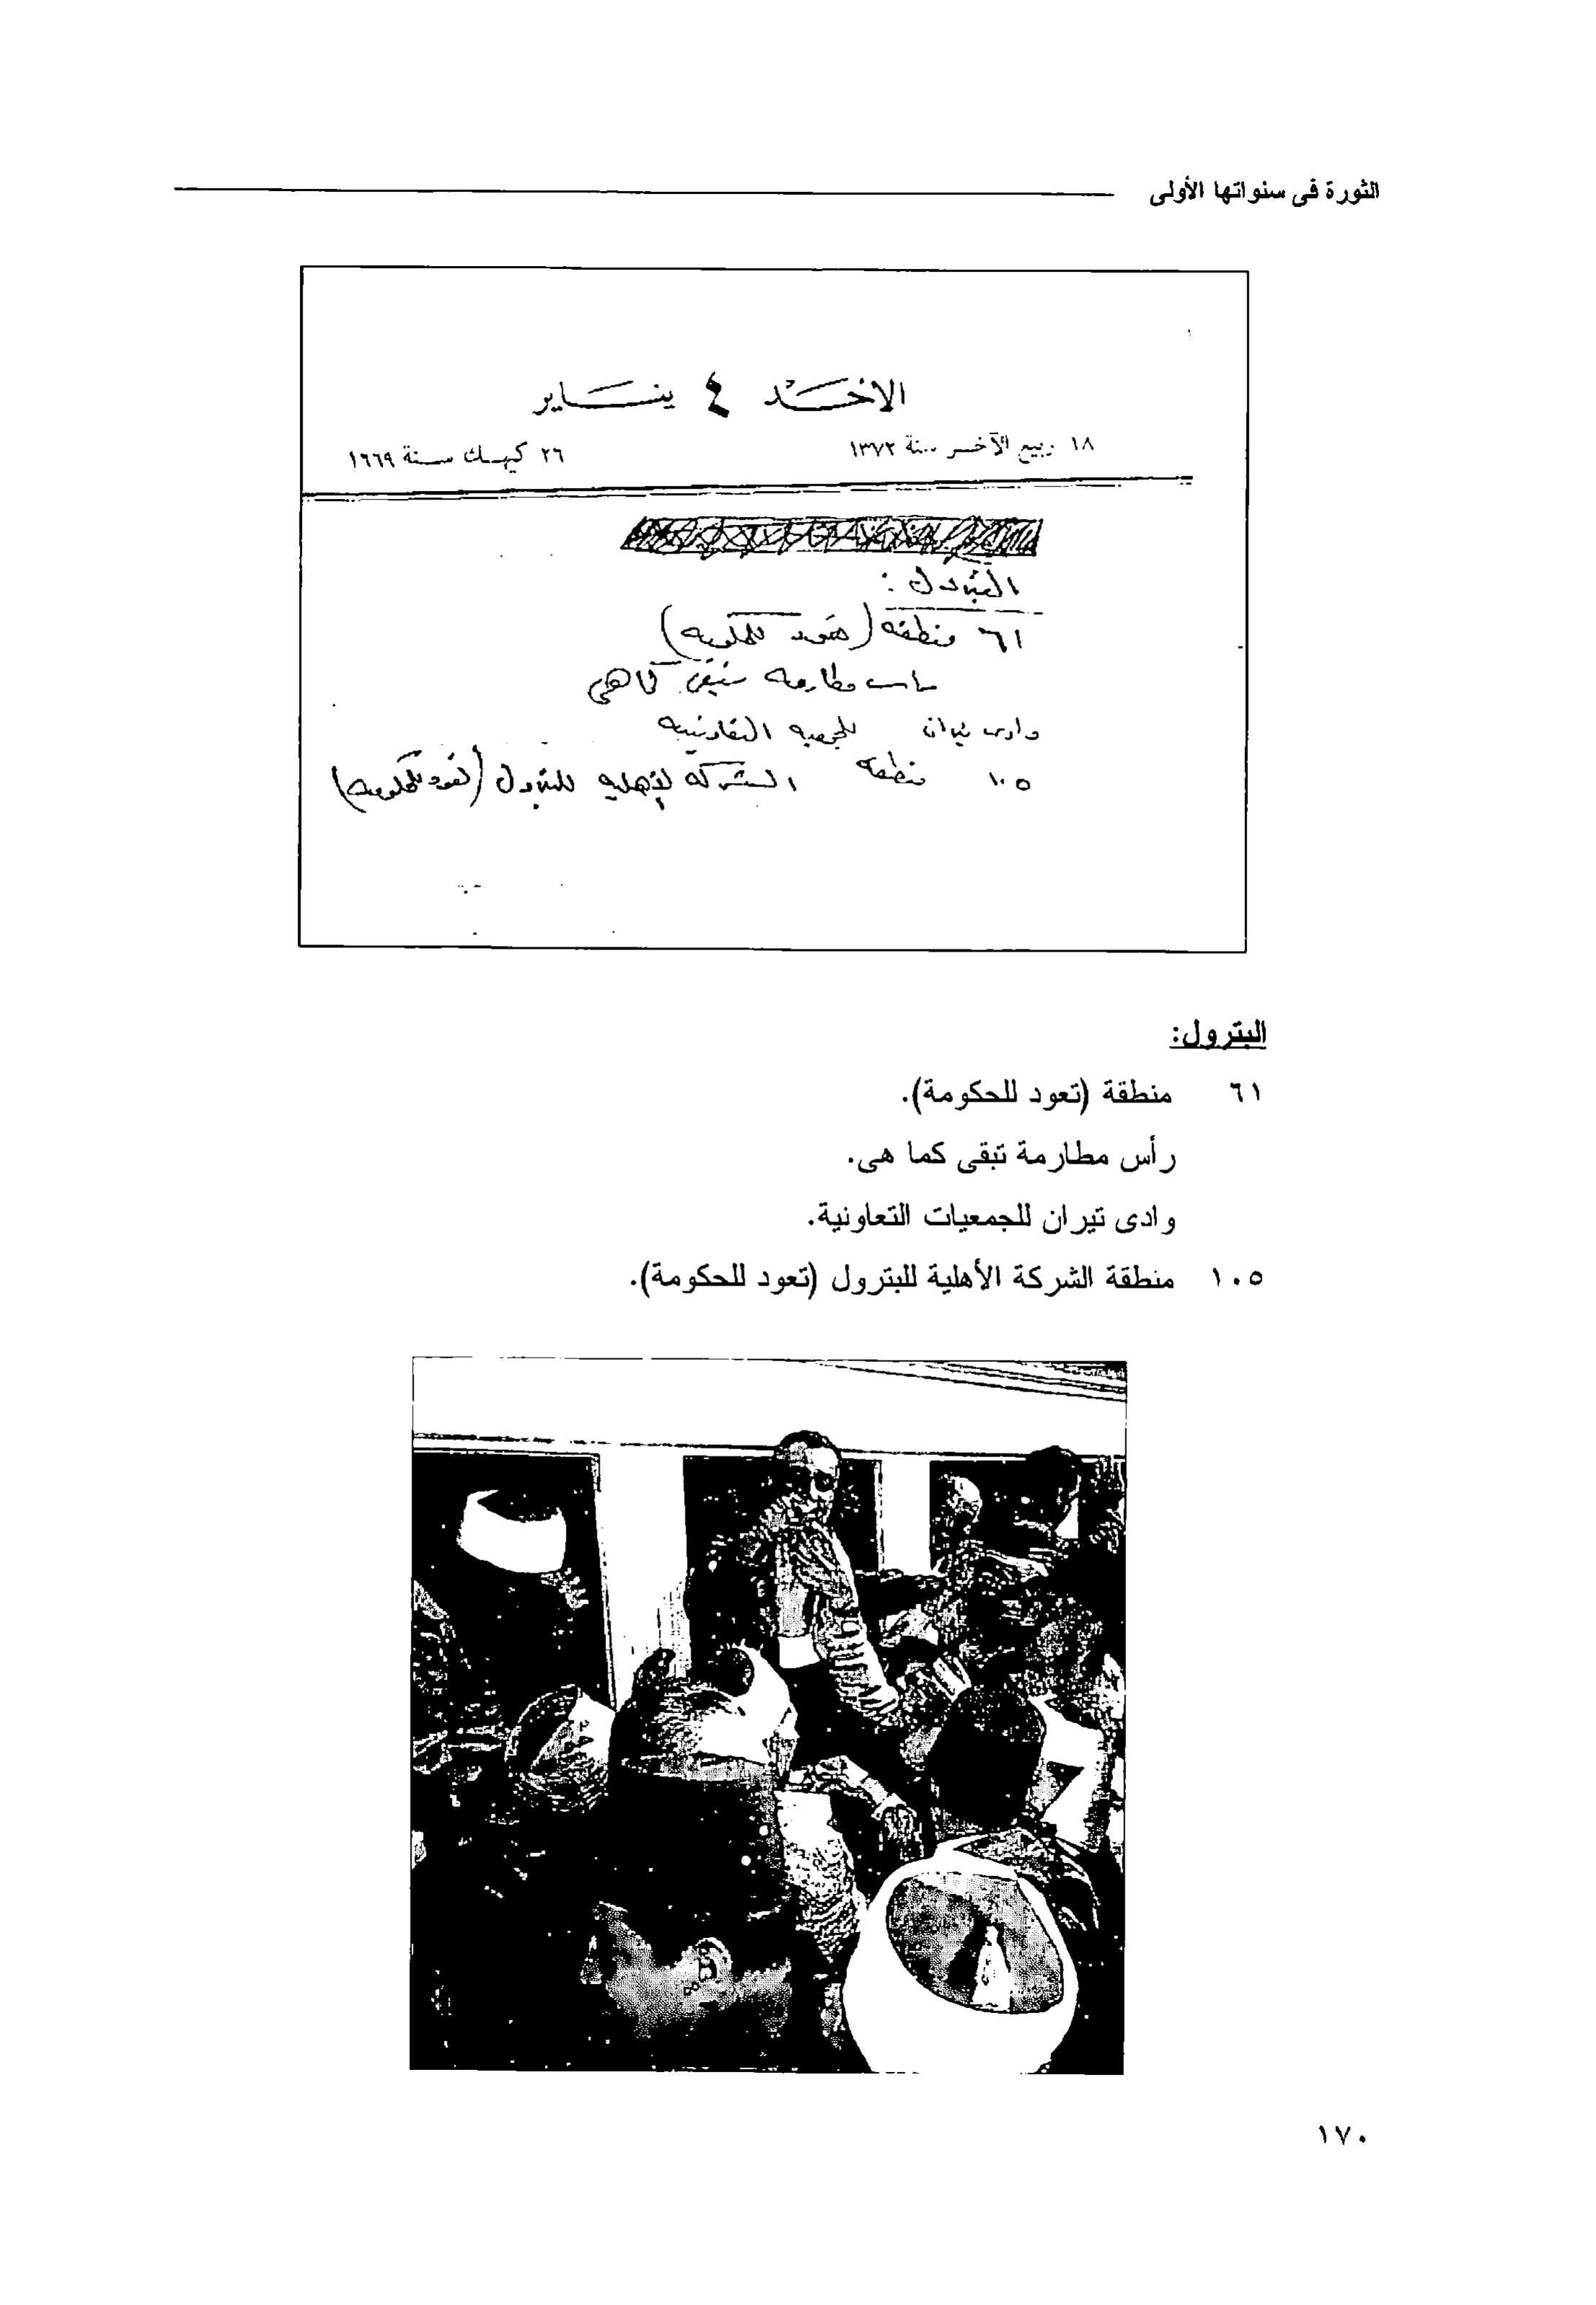 الثورة فى سنواتها الأولى
الاحد ٤ ينساير
١٨ ربيع الآخر سنة ١٣٧٢
٢٦ كيهك سنة ١٦٦٩
البترول :
٦١ منطقه (تعود للحكومه)
راس مطارمه ستبقى كما هى
وادى تيران للجمعيه التعاونيه
١٠٥ منطقه الشركه الأهليه للبترول (تعود للحكومه)
البترول:
٦١ منطقة (تعود للحكومة).
رأس مطارمة تبقى كما هى.
وادى تيران للجمعيات التعاونية.
١٠٥ منطقة الشركة الأهلية للبترول (تعود للحكومة).
١٧٠